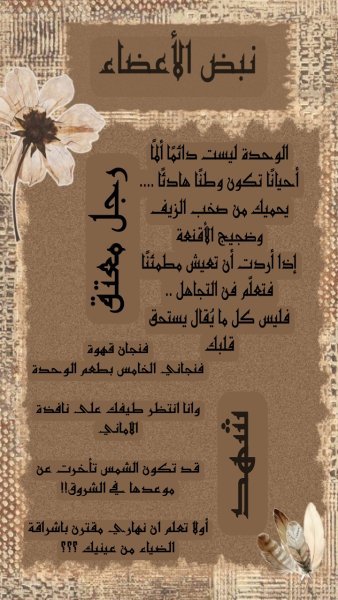 نبض الأعضاء
رجل معتق
الوحدة ليست دائمًا ألمًا
أحيانًا تكون وطنًا هادئًا ....
يحميك من صخب الزيف
وضجيج الأقنعة
إذا أردت أن تعيش مطمئنًا
فتعلّم فن التجاهل ..
فليس كل ما يُقال يستحق
قلبك
شهد
فنجان قهوة
فنجاني الخامس بطعم الوحدة
وانا انتظر طيفك على نافذة
الاماني
قد تكون الشمس تأخرت عن
موعدها في الشروق!!
أولا تعلم ان نهاري مقترن باشراقة
الضياء من عينيك ؟؟؟